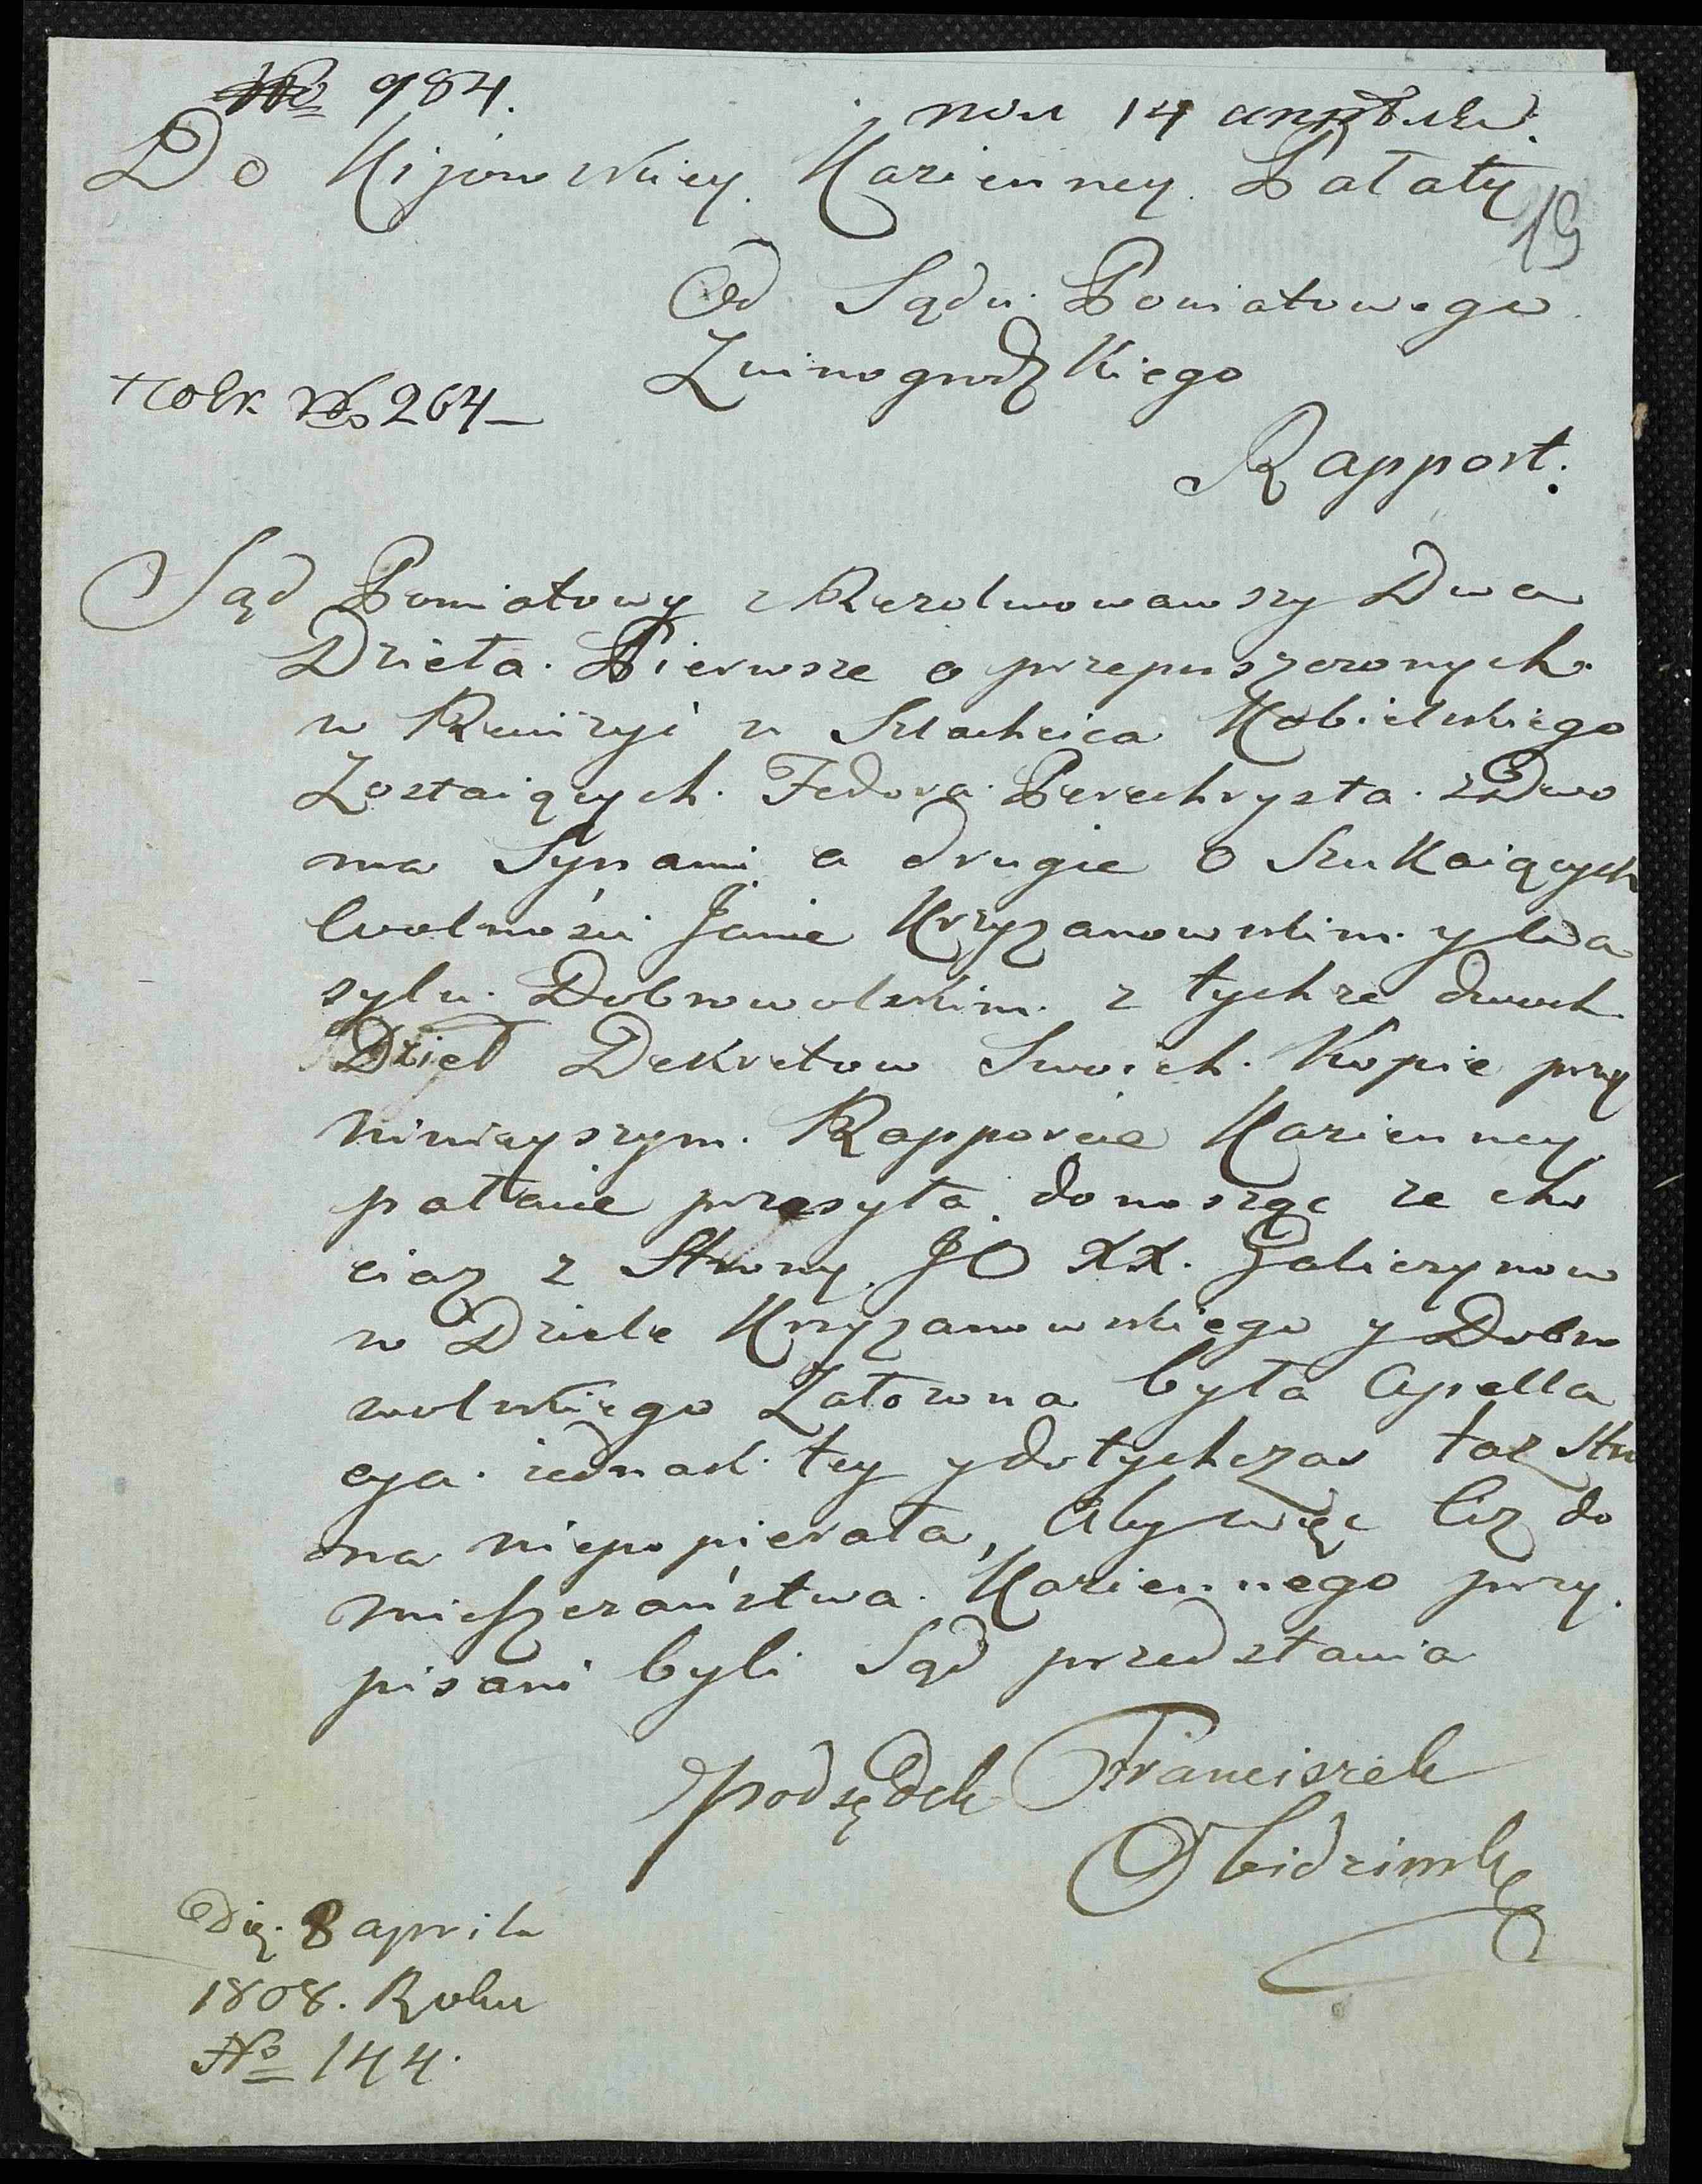 № 984.
пол 14 апрѣля
Do Kijowskiey Kazienney Pałaty
19
Od Sądu Powiatowego
Zwinogrodzkiego
№ 264
Rapport.
Sąd Powiatowy zRezolwowawszy Dwa
Dzieła. Pierwsze o przepuszczonych
w Rewizyi u Szlachcica Kobielskiego
Zostaiących Fedora Perechrysta z Dwo
ma Synami a drugie o Szukaiących
Wolności Janie Krzyzanowskim y Wa
sylu Dobrowolskim z tychze dwóch
Dzieł Dekretow Swoich Kopie przy
ninieyszym Rapporcie Kazienney
pałacie przesyła donosząc ze cho
ciaz z Strony JO XX. Galiczynow
w Dziele Krzyzanowskiego y Dobro
wolskiego Załozona była Apella
cya iednak tey y dotychczas taz Stro
ona niepopierała, Aby więc Ciz do
mieszczaństwa Kaziennego przy
pisani byli Sąd przedstawia
Podsędek Franciszek
Obidzinski
Dię. 8 aprila
1808. Roku
№ 144.